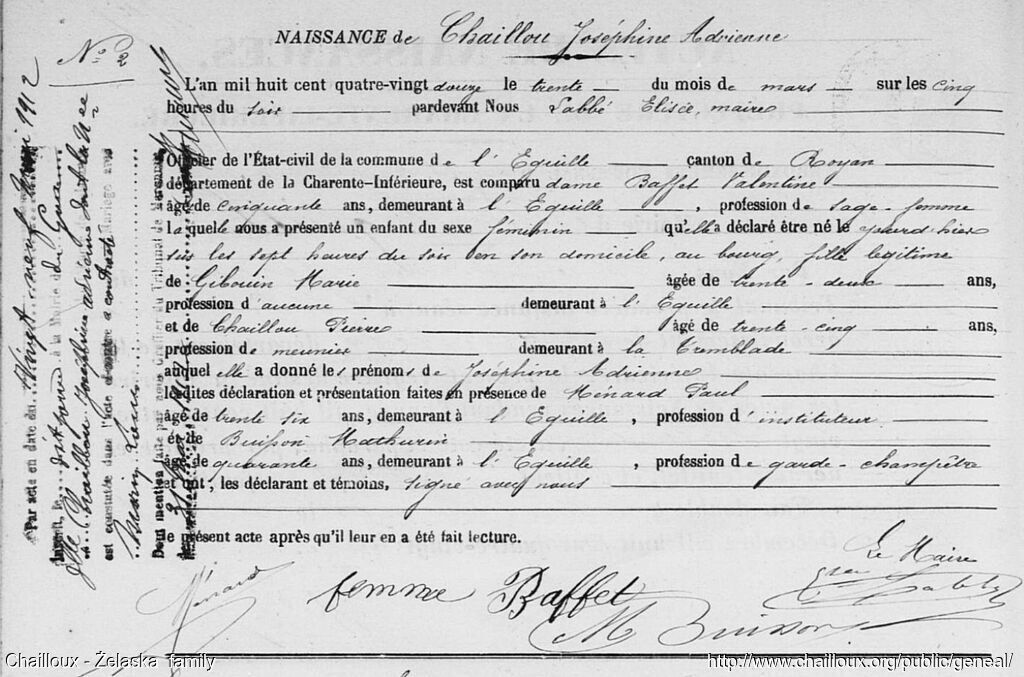 N° 2
NAISSANCE de Chaillou Joséphine Adrienne
L'an mil huit cent quatre-vingt douze le trente du mois de mars sur les cinq
heures du soir pardevant Nous Labbé Elisée, maire
Officier de l'État-civil de la commune de l'Eguille canton de Royan
département de la Charente-Inférieure, est comparu dame Baffet Valentine
âgé de cinquante ans, demeurant à l'Eguille, profession de sage-femme
laquelle nous a présenté un enfant du sexe féminin qu'elle a déclaré être né le jourd'hier
sur les sept heures du soir en son domicile, au bourg, fille légitime
de Gibouin Marie âgée de trente-deux ans,
profession d'aucune demeurant à l'Eguille
et de Chaillou Pierre âgé de trente-cinq ans,
profession de meunier demeurant à la Tremblade
auquel elle a donné les prénoms de Joséphine Adrienne
Lesdites déclaration et présentation faites en présence de Ménard Paul
âgé de trente six ans, demeurant à l'Eguille, profession d'instituteur
et de Buisson Mathurin
âgé de quarante ans, demeurant à l'Eguille, profession de garde-champêtre
et ont, les déclarant et témoins, signé avec nous
le présent acte après qu'il leur en a été fait lecture.
Le Maire
Ménard
femme Baffet
M Buisson
Par acte en date du Vingt neuf 1912
à la Mairie du
Chaillou Joséphine Adrienne
est constatée dans l'acte a contracté mariage avec
Dont mention faite par nous Greffier du Tribunal de Marennes
Chailloux - Želaska family
http://www.chailloux.org/public/geneal/